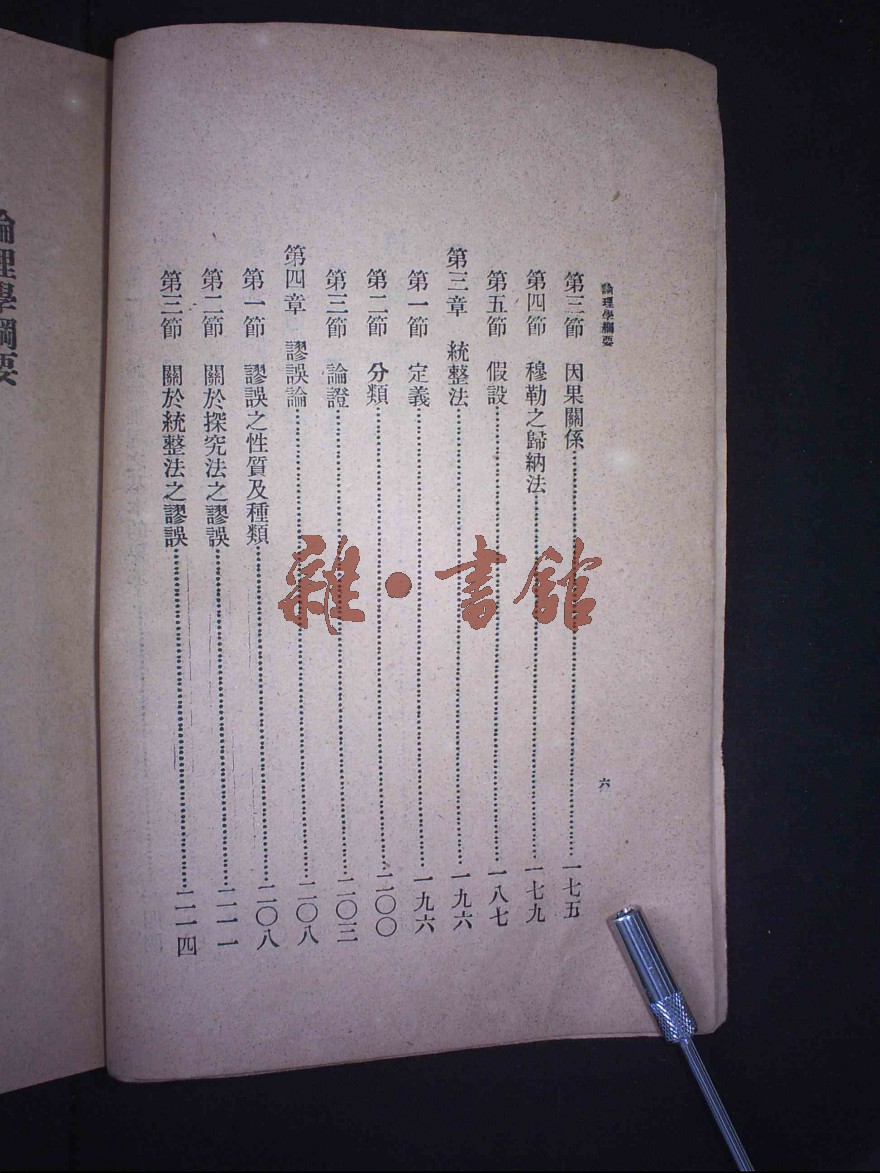 論理學綱要
六
第三節　因果關係……一七五
第四節　穆勒之歸納法……一七九
第五節　假設……一八七
第三章　統整法……一九六
第一節　定義……一九六
第二節　分類……二〇〇
第三節　論證……二〇三
第四章　謬誤論……二〇八
第一節　謬誤之性質及種類……二〇八
第二節　關於探究法之謬誤……二一一
第三節　關於統整法之謬誤……二一四
論理學綱要
雜·書館